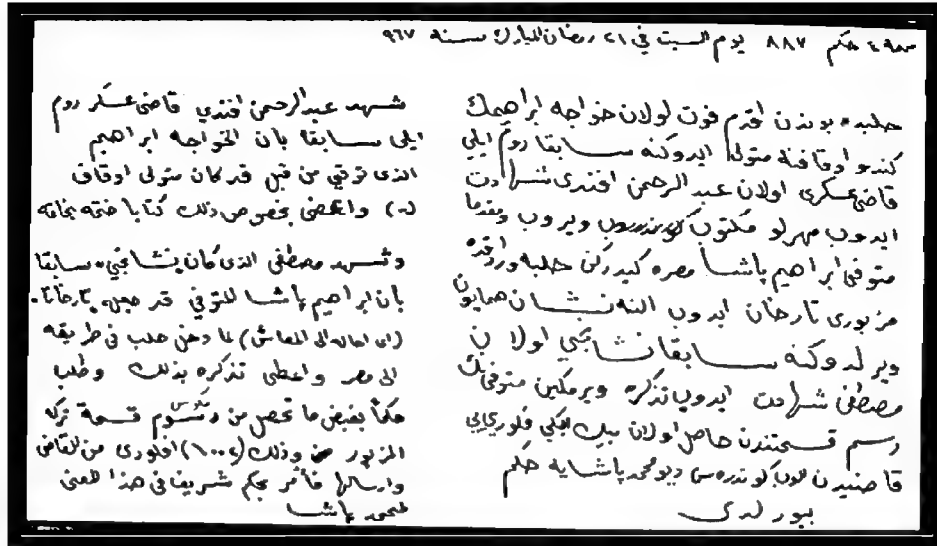 حكم ٨٨٧ يوم السبت في ٢١ رمضان المبارك سنه ٩٦٧
حلبده بوندن اقدم فوت اولان خواجه ابراهيمك
كندو اوقافنه متولى ايدوكنه سابقا روم ايلي
قاضى عسكرى اولان عبد الرحمن افندى شهادت
ايدوب مهرلو مكتوب ويروب ومقدما
متوفى ابراهيم پاشا مصره كيدركن حلبه
مزبورى تارخان ايدوب النه نشان همايون
ويرلدوكنه سابقا نشانجي اولان
مصطفى شهادت ايدوب تذكره ويرمكين متوفينك
رسم قسمتندن حاصل اولان بيك ايكي فلورى يي
قاضيدن الوب كوندره سن ديو محمد پاشايه حكم
بيورلدى
شهد عبد الرحمن افندي قاضى عسكر روم
ايلى سابقا بأن الخواجه ابراهيم
الذى توفي من قبل قد كان متولى اوقاف
له) واعطى بخصوص ذلك كتابا ختمه بخاتمه
وشهد مصطفى الذى كان نشانجي سابقا
بان ابراهيم پاشا المتوفي قد جعله تارخانا
(اى احاله الى المعاش) لما دخل حلب في طريقه
الى مصر واعطى تذكره بذلك وطلب
حكما بقبض ما تحصل من رسوم قسمة تركه
المزبور وذلك (١٠٠٢) افلورى من القاضي
وارسالها فأمر بحكم شريف في هذا المعنى
لمحمد پاشا